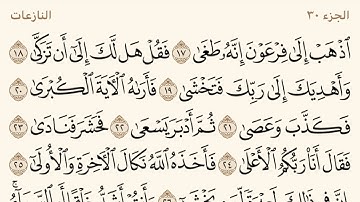 الجزء ٣٠
النازعات
ٱذۡهَبۡ إِلَىٰ فِرۡعَوۡنَ إِنَّهُۥ طَغَىٰ ١٧ فَقُلۡ هَل لَّكَ إِلَىٰٓ أَن تَزَكَّىٰ ١٨
وَأَهۡدِيَكَ إِلَىٰ رَبِّكَ فَتَخۡشَىٰ ١٩ فَأَرَىٰهُ ٱلۡأٓيَةَ ٱلۡكُبۡرَىٰ ٢٠
فَكَذَّبَ وَعَصَىٰ ٢١ ثُمَّ أَدۡبَرَ يَسۡعَىٰ ٢٢ فَحَشَرَ فَنَادَىٰ ٢٣
فَقَالَ أَنَا۠ رَبُّكُمُ ٱلۡأَعۡلَىٰ ٢٤ فَأَخَذَهُ ٱللَّهُ نَكَالَ ٱلۡأٓخِرَةِ وَٱلۡأُولَىٰٓ ٢٥